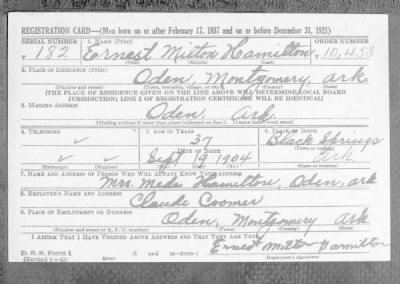 REGISTRATION CARD—(Men born on or after February 17, 1897 and on or before December 31, 1921)
SERIAL NUMBER 1. NAME (Print) ORDER NUMBER
T 182 Ernest Milton Hamilton T 10,458
(First) (Middle) (Last)
2. PLACE OF RESIDENCE (Print)
Oden, Montgomery, Ark.
(Number and street) (Town, township, village, or city) (County) (State)
[THE PLACE OF RESIDENCE GIVEN ON THE LINE ABOVE WILL DETERMINE LOCAL BOARD
JURISDICTION; LINE 2 OF REGISTRATION CERTIFICATE WILL BE IDENTICAL]
3. MAILING ADDRESS
Oden, Ark.
[Mailing address if other than place indicated on line 2. If same insert word same]
4. TELEPHONE 5. AGE IN YEARS 6. PLACE OF BIRTH
37 Black Springs
DATE OF BIRTH
Sept 19 1904 Ark
(Exchange) (Number) (Mo.) (Day) (Yr.) (State or country)
7. NAME AND ADDRESS OF PERSON WHO WILL ALWAYS KNOW YOUR ADDRESS
Mrs. Meda Hamilton, Oden, Ark
8. EMPLOYER'S NAME AND ADDRESS
Claude Coomer
9. PLACE OF EMPLOYMENT OR BUSINESS
Oden, Montgomery Ark
(Number and street or R. F. D. number) (Town) (County) (State)
I AFFIRM THAT I HAVE VERIFIED ABOVE ANSWERS AND THAT THEY ARE TRUE.
Ernest Milton Hamilton
D. S. S. Form 1
(Revised 1-1-42) (Registrant's signature)